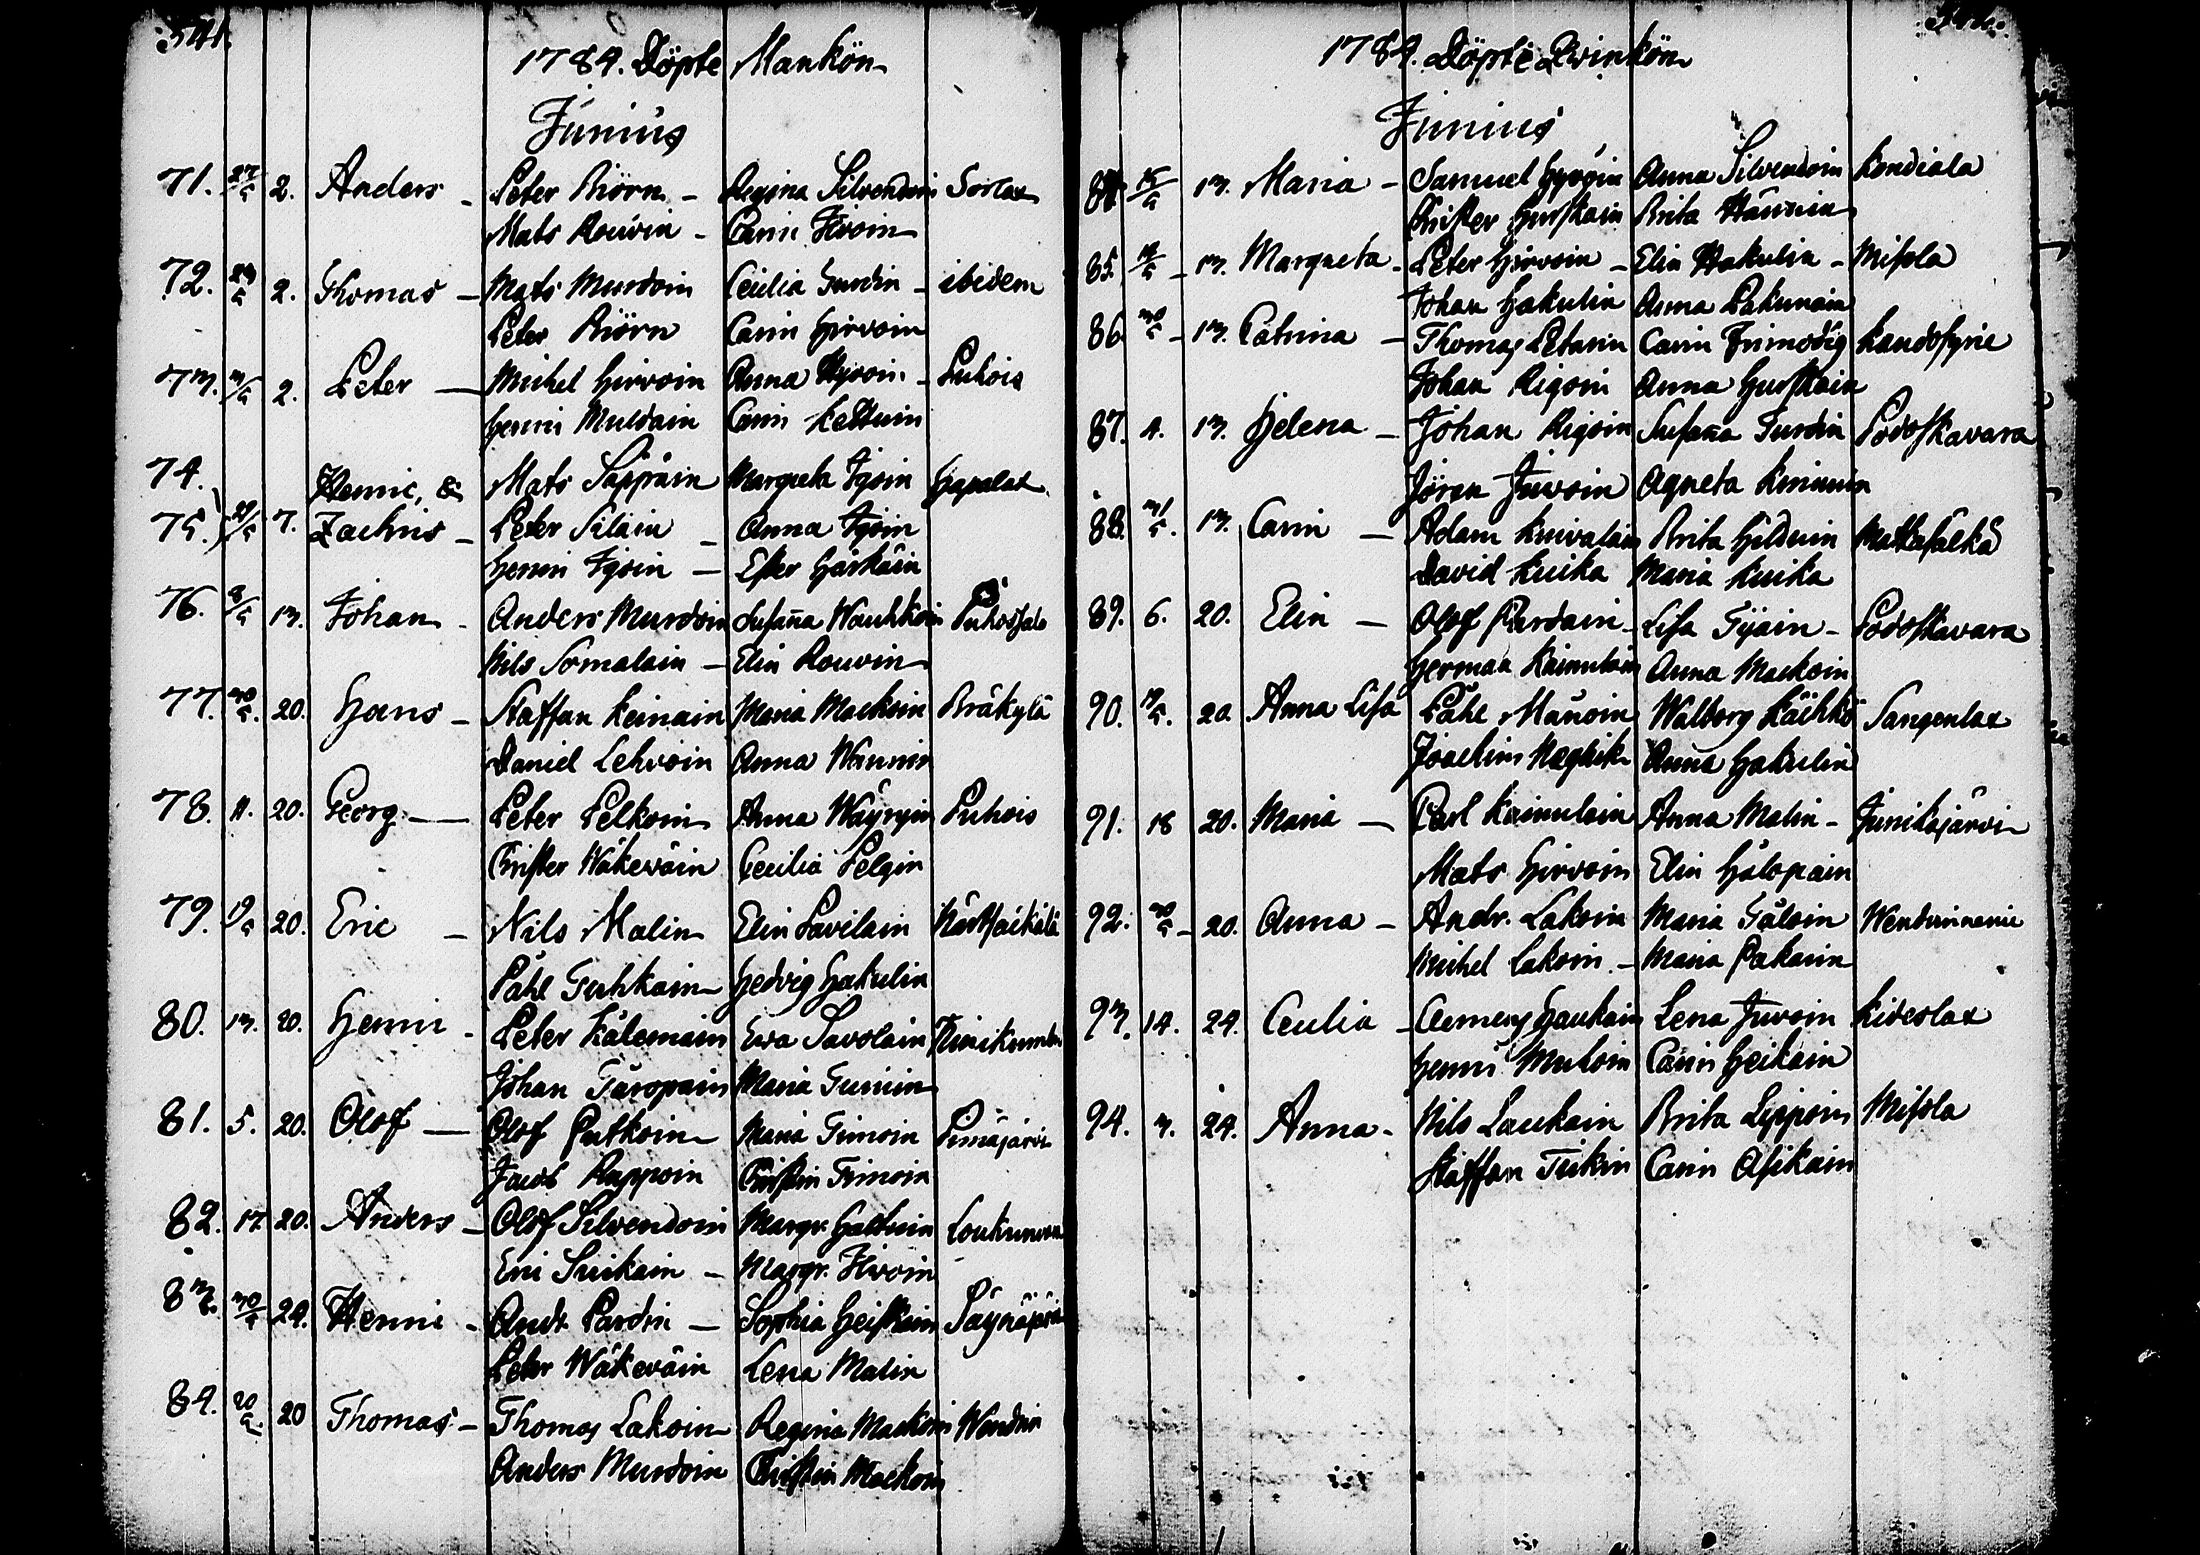 541.
1784. Döpte Mankön
Junius
71. 27/5 2. Anders - Peter Biörn - Regina Silvendoin Sorlax
Mats Rouvin - Carin Hivoin
72. 23/5 2. Thomas - Mats Murdoin Cecilia Turdin - ibidem
Peter Biörn Carin Hirvoin
73. 3/5 2. Peter - Michel Hirvoin Anna Hyvoin - Puhois
Henric Muldain Carin Kettuin
74. Henric, & Mats Säppäin Margreta Igoin Hapalax
75. 29/5 7. Zachris - Peter Siläin - Anna Igoin
Henric Igoin - Ester Härkäin
76. 8/5 13. Johan - Anders Murdoin Susaña Wauhkoin
Nils Somalain - Elin Rouvin
77. 30/5. 20. Hans - Staffan Keinain Maria Mackoin Bräkylä
Daniel Lehvoin Anna Wännin
78. 11. 20. Georg - Peter Pelkoin Anna Wäyryin Puhois
Christer Wäkeväin Cecilia Pelgin
79. 19/5 20. Eric - Nils Malin Elin Pavilain
Påhl Tuhkain Hedvig Hakulin
80. 13. 20. Henric - Peter Kälemain Ewa Savolain
Johan Täropain Maria Turuin
81. 5. 20. Olof - Olof Putkoin Maria Timoin
Jacob Rappoin Christin Timoin
82. 17. 20. Anders - Olof Silvendoin Margr.
Eric Suikain - Margr. Hivoin
83. 30/5 24. Henric - Andr. Pardin - Sophia Heiskain
Peter Wäkeväin Lena Malin
84. 20/5. 20 Thomas - Thomas Lakoin Regina Mackoin
Anders Murdoin Christin Mackoin
1784. Döpte Qwinkön
Junius
84. 15/5 13. Maria - Samuel Hyvöin Anna Silvendoin Kondiala
Christer Hurskain Brita Hännin
85. 18/5 - 13. Margreta - Peter Hirvoin - Elin Hakulin - Misola
Johan Hakulin Anna Pakunain
86. 30/5 - 13. Catrina - Thomas Petarin Carin Frimodig
Johan Rigoin Anna Hurskain
87. 4. 13. Helena - Johan Rigoin Susaña Turdin Podoskavara
Jöran Juvoin Agneta Kinnuin
88. 31/5. 13. Carin - Adam Kuivalain Brita Hilduin Matkasälkä
David Kuika Maria Kuika
89. 6. 20. Elin - Olof Purdain - Lisa Tijain - Podoskavara
Herman Kainulain Anna Mackoin
90. 19/5. 20. Anna Lisa Påhl Mänoin Walborg Käihkö Sangenlax
Joachim Anna Hakulin
91. 18 20. Maria - Carl Kainulain Anna Malin - Junikajärvi
Mats Hirvoin Elin Hålopain
92. 30/5 - 20. Anna - Andr. Lakoin Maria Täloin
Michel Lakoin - Maria Pakarin
93. 14. 24. Cecilia - Clemens Haukain Lena Juvoin Kideslax
Henric Muloin Carin Heikain
94. 3. 24. Anna - Nils Laukain Brita Lipposin Misola
Staffan Tiikin Carin Asikain